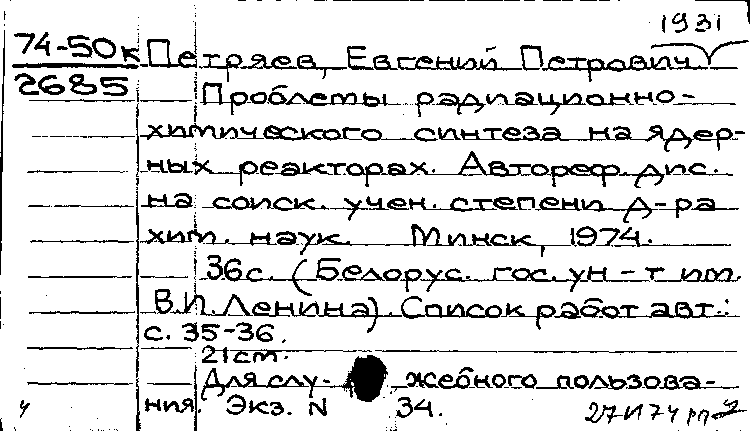 1931
74-50к Петряев, Евгений Петрович
2685
Проблемы радиационно-
химического синтеза на ядер-
ных реакторах. Автореф. дис.
на соиск. учен. степени д-ра
хим. наук. Минск, 1974.
36с. (Белорус. гос. ун-т им.
В.И. Ленина). Список работ авт.:
с. 35-36.
21см.
Для слу- жебного пользова-
ния. Экз. N 34.
27 И 74